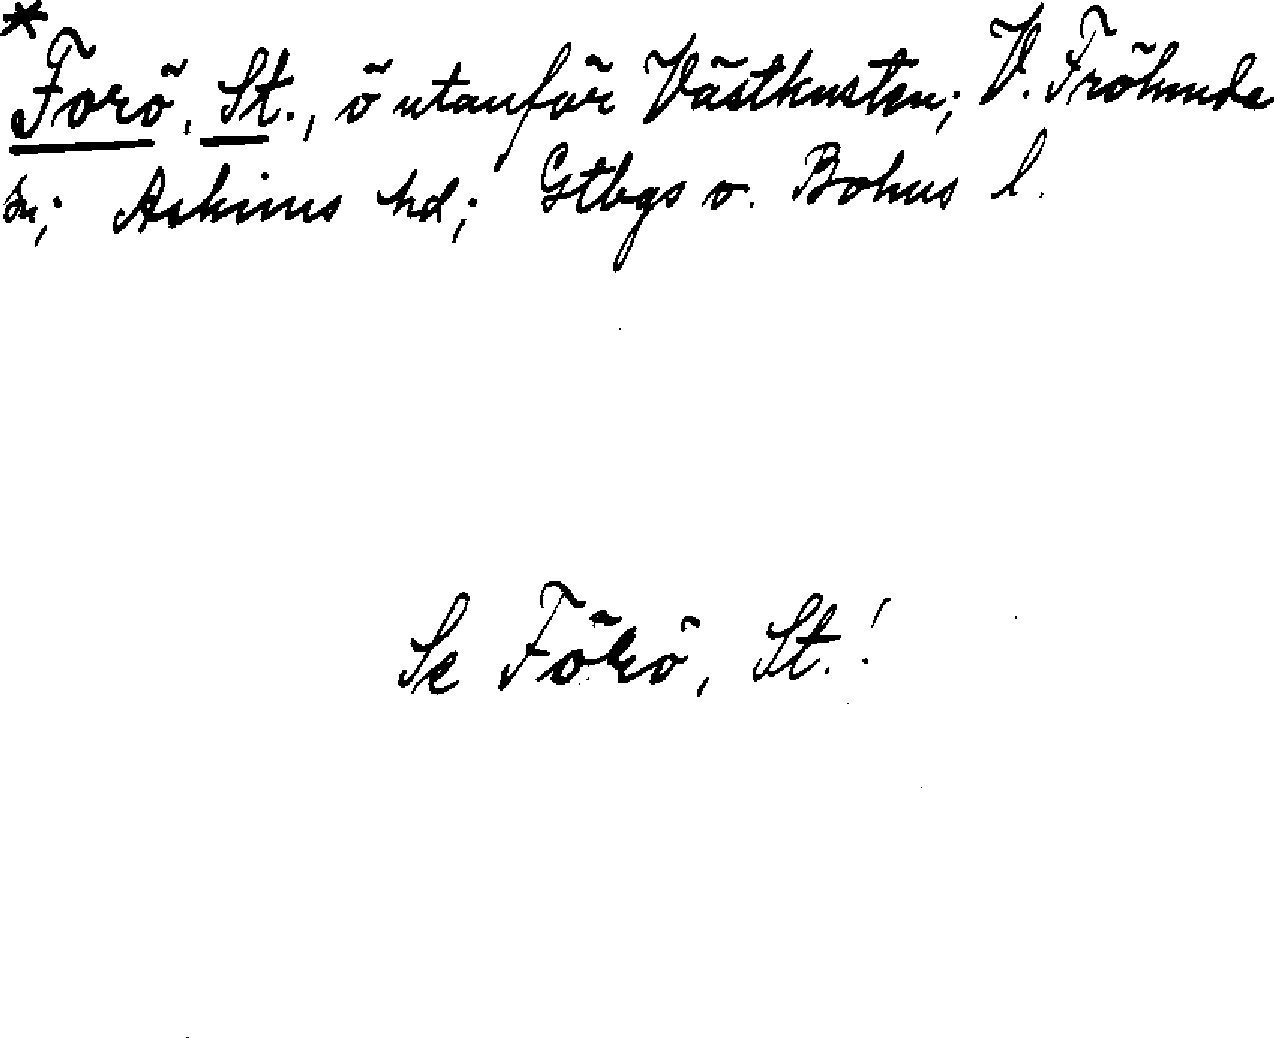 *
Forö, St., ö utanför Västkusten; V. Frölunda
sn; Askims hd; Gtbgs o. Bohus l.
Se Förö, St.!